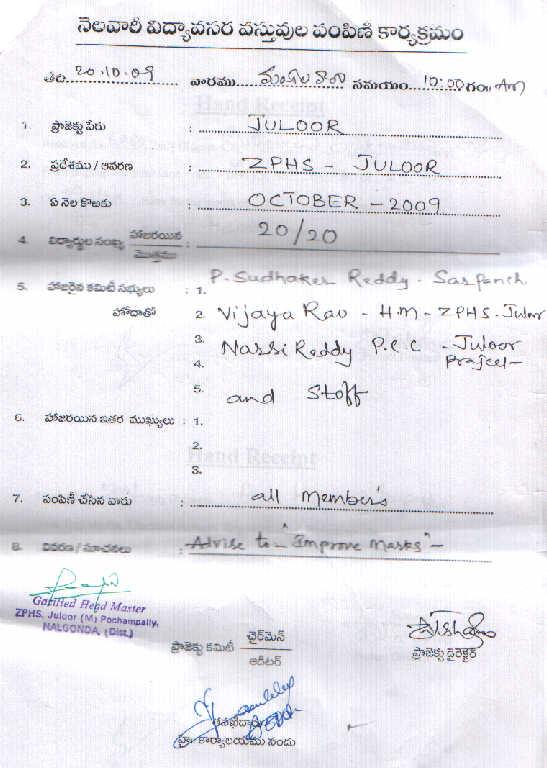 నెలవారీ విద్యావసర వస్తువుల పంపిణి కార్యక్రమం
తేది. 20.10.09 వారము మంగళవారం సమయం 10:00 గం॥ AM
1. ప్రాజెక్టు పేరు : JULOOR
2. ప్రదేశము / ఆవరణ : ZPHS - JULOOR
3. ఏ నెల కొఱకు : OCTOBER - 2009
4. విద్యార్థుల సంఖ్య హాజరయిన / మొత్తము : 20/20
5. హాజరైన కమిటీ సభ్యులు : 1. P. Sudhaker Reddy - Sarpanch
హోదాతో 2. Vijaya Rao - H.M - ZPHS - Juloor
3. Narsi Reddy P.C.C - Juloor Project -
4.
5. and Staff
6. హాజరయిన ఇతర ముఖ్యులు : 1.
2.
3.
7. పంపిణీ చేసిన వారు : all Member's
8. వివరణ / సూచనలు : Advise to - "Improve Marks" -
Gazitted Head Master
ZPHS, Juloor (M) Pochampally,
NALGONDA, (Dist.)
ప్రాజెక్టు కమిటీ చైర్‌మెన్ / ఆడిటర్
ప్రాజెక్టు డైరెక్టర్
కార్యాలయము నందు